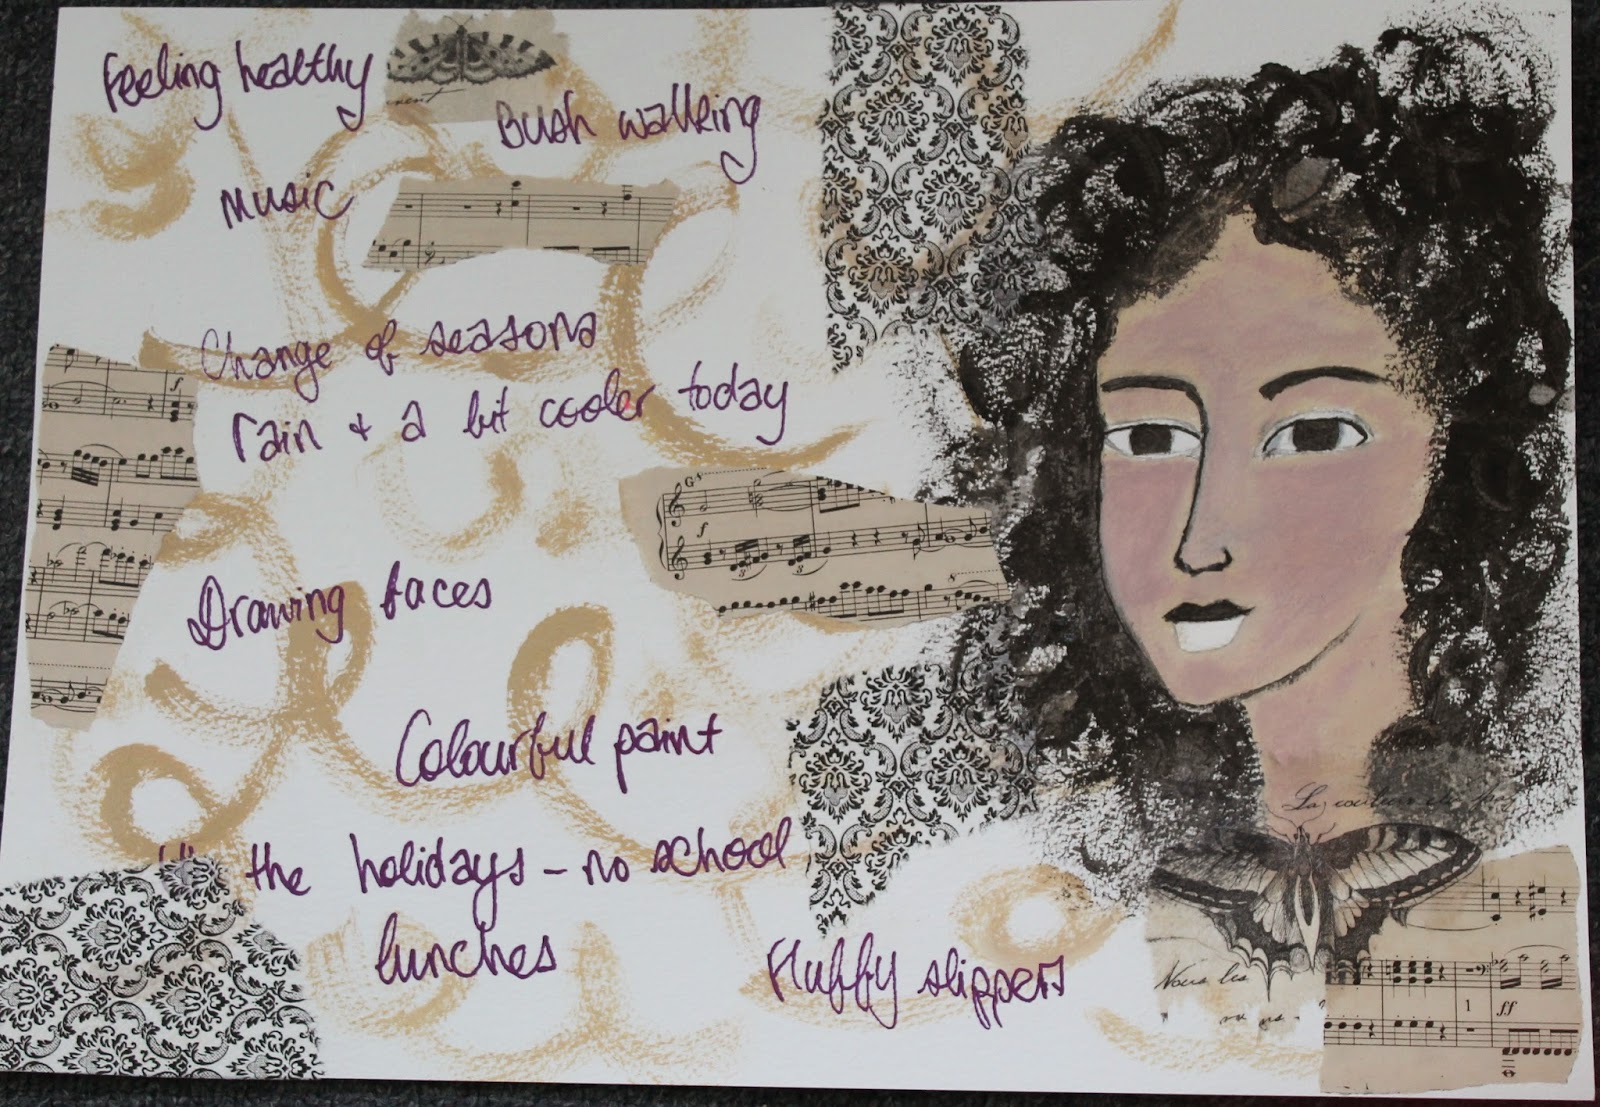 Feeling healthy
Bush walking
Music
Change of seasons
rain + a bit cooler today
Drawing faces
Colourful paint
the holidays - no school
lunches
Fluffy slippers
La
Nous les
G8
f
f
3
3
8
1
ff